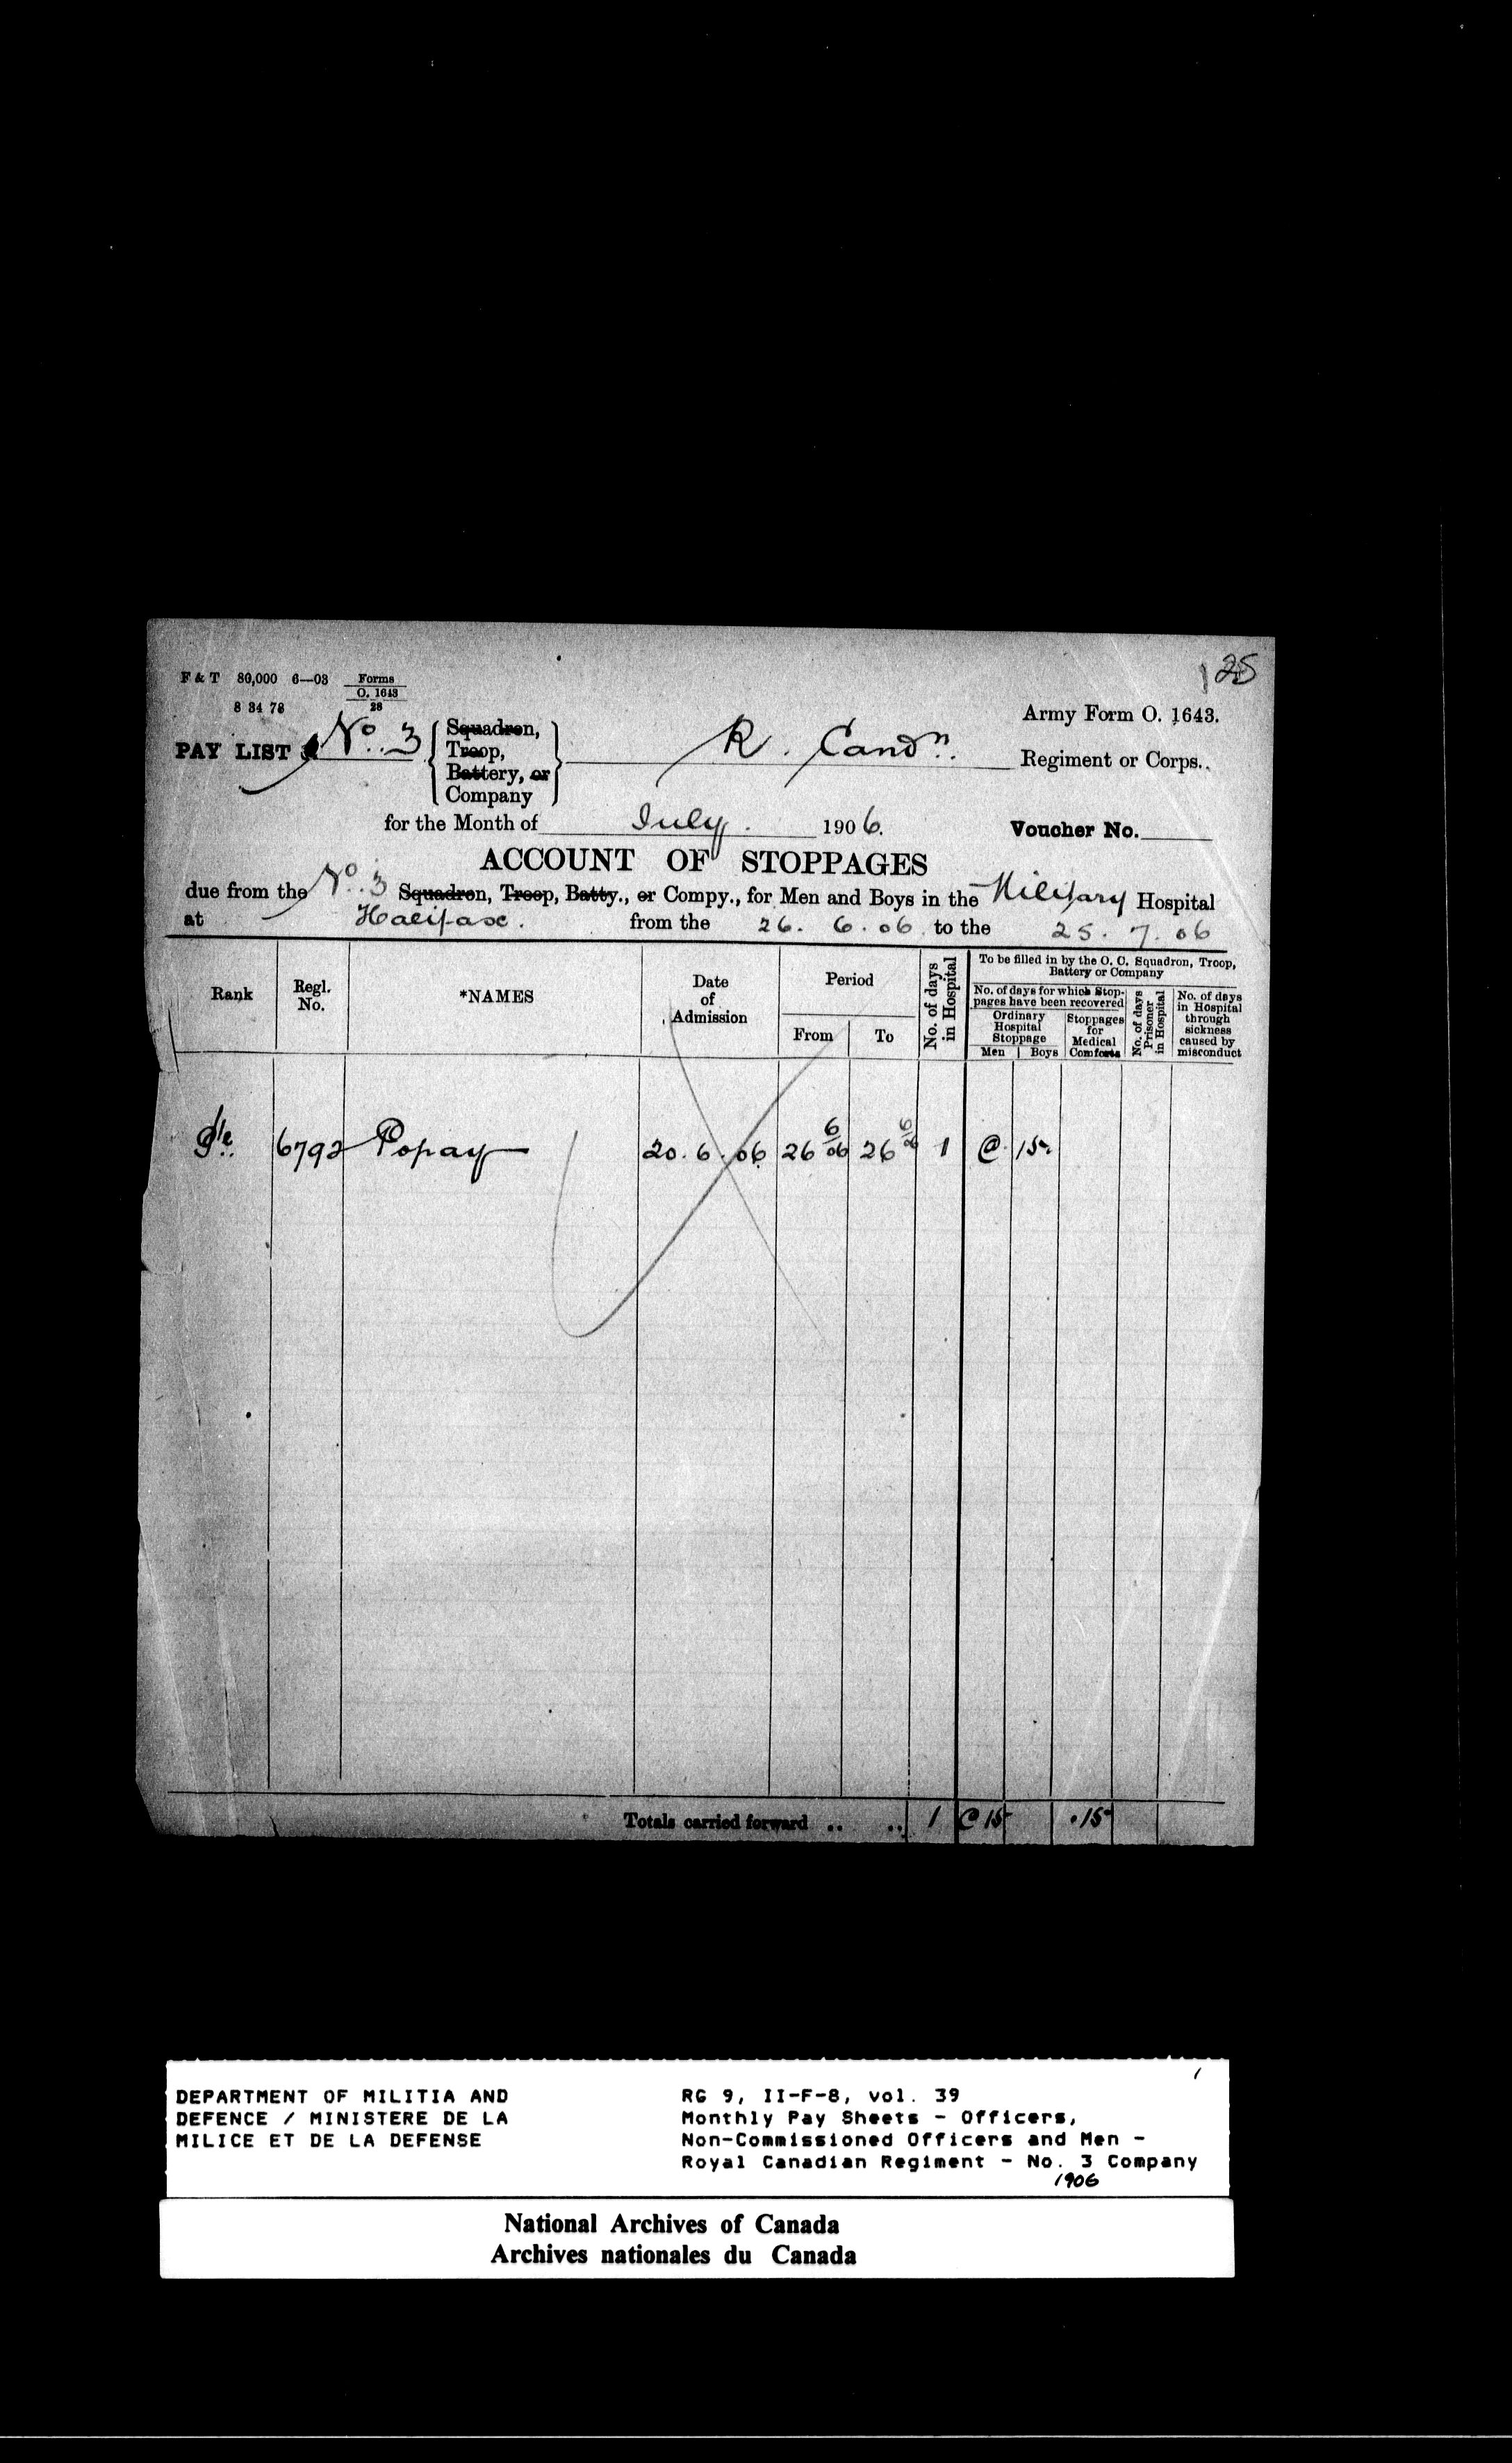 25
F & T 80,000 6—03 Forms
O. 1643
28
8 34 78
Army Form O. 1643.
PAY LIST No. 3 { Squadron, Troop, Battery, or Company } R. Candn. Regiment or Corps.
for the Month of July. 1906. Voucher No.
ACCOUNT OF STOPPAGES
due from the No. 3 Squadron, Troop, Batty., or Compy., for Men and Boys in the Military Hospital
at Halifax. from the 26. 6. 06 to the 25. 7. 06
Rank
Regl. No.
*NAMES
Date of Admission
Period
From To
No. of days in Hospital
To be filled in by the O. C. Squadron, Troop, Battery or Company
No. of days for which Stoppages have been recovered
Ordinary Hospital Stoppage
Men Boys
Stoppages for Medical Comforts
No. of days Prisoner in Hospital
No. of days in Hospital through sickness caused by misconduct
Pte. 6792 Popay 20. 6. 06 26 6/06 26 6/06 1 @ 15
Totals carried forward .. .. 1 @ 15 .15
DEPARTMENT OF MILITIA AND
DEFENCE / MINISTERE DE LA
MILICE ET DE LA DEFENSE
RG 9, II-F-8, vol. 39
Monthly Pay Sheets - Officers,
Non-Commissioned Officers and Men -
Royal Canadian Regiment - No. 3 Company
1906
National Archives of Canada
Archives nationales du Canada